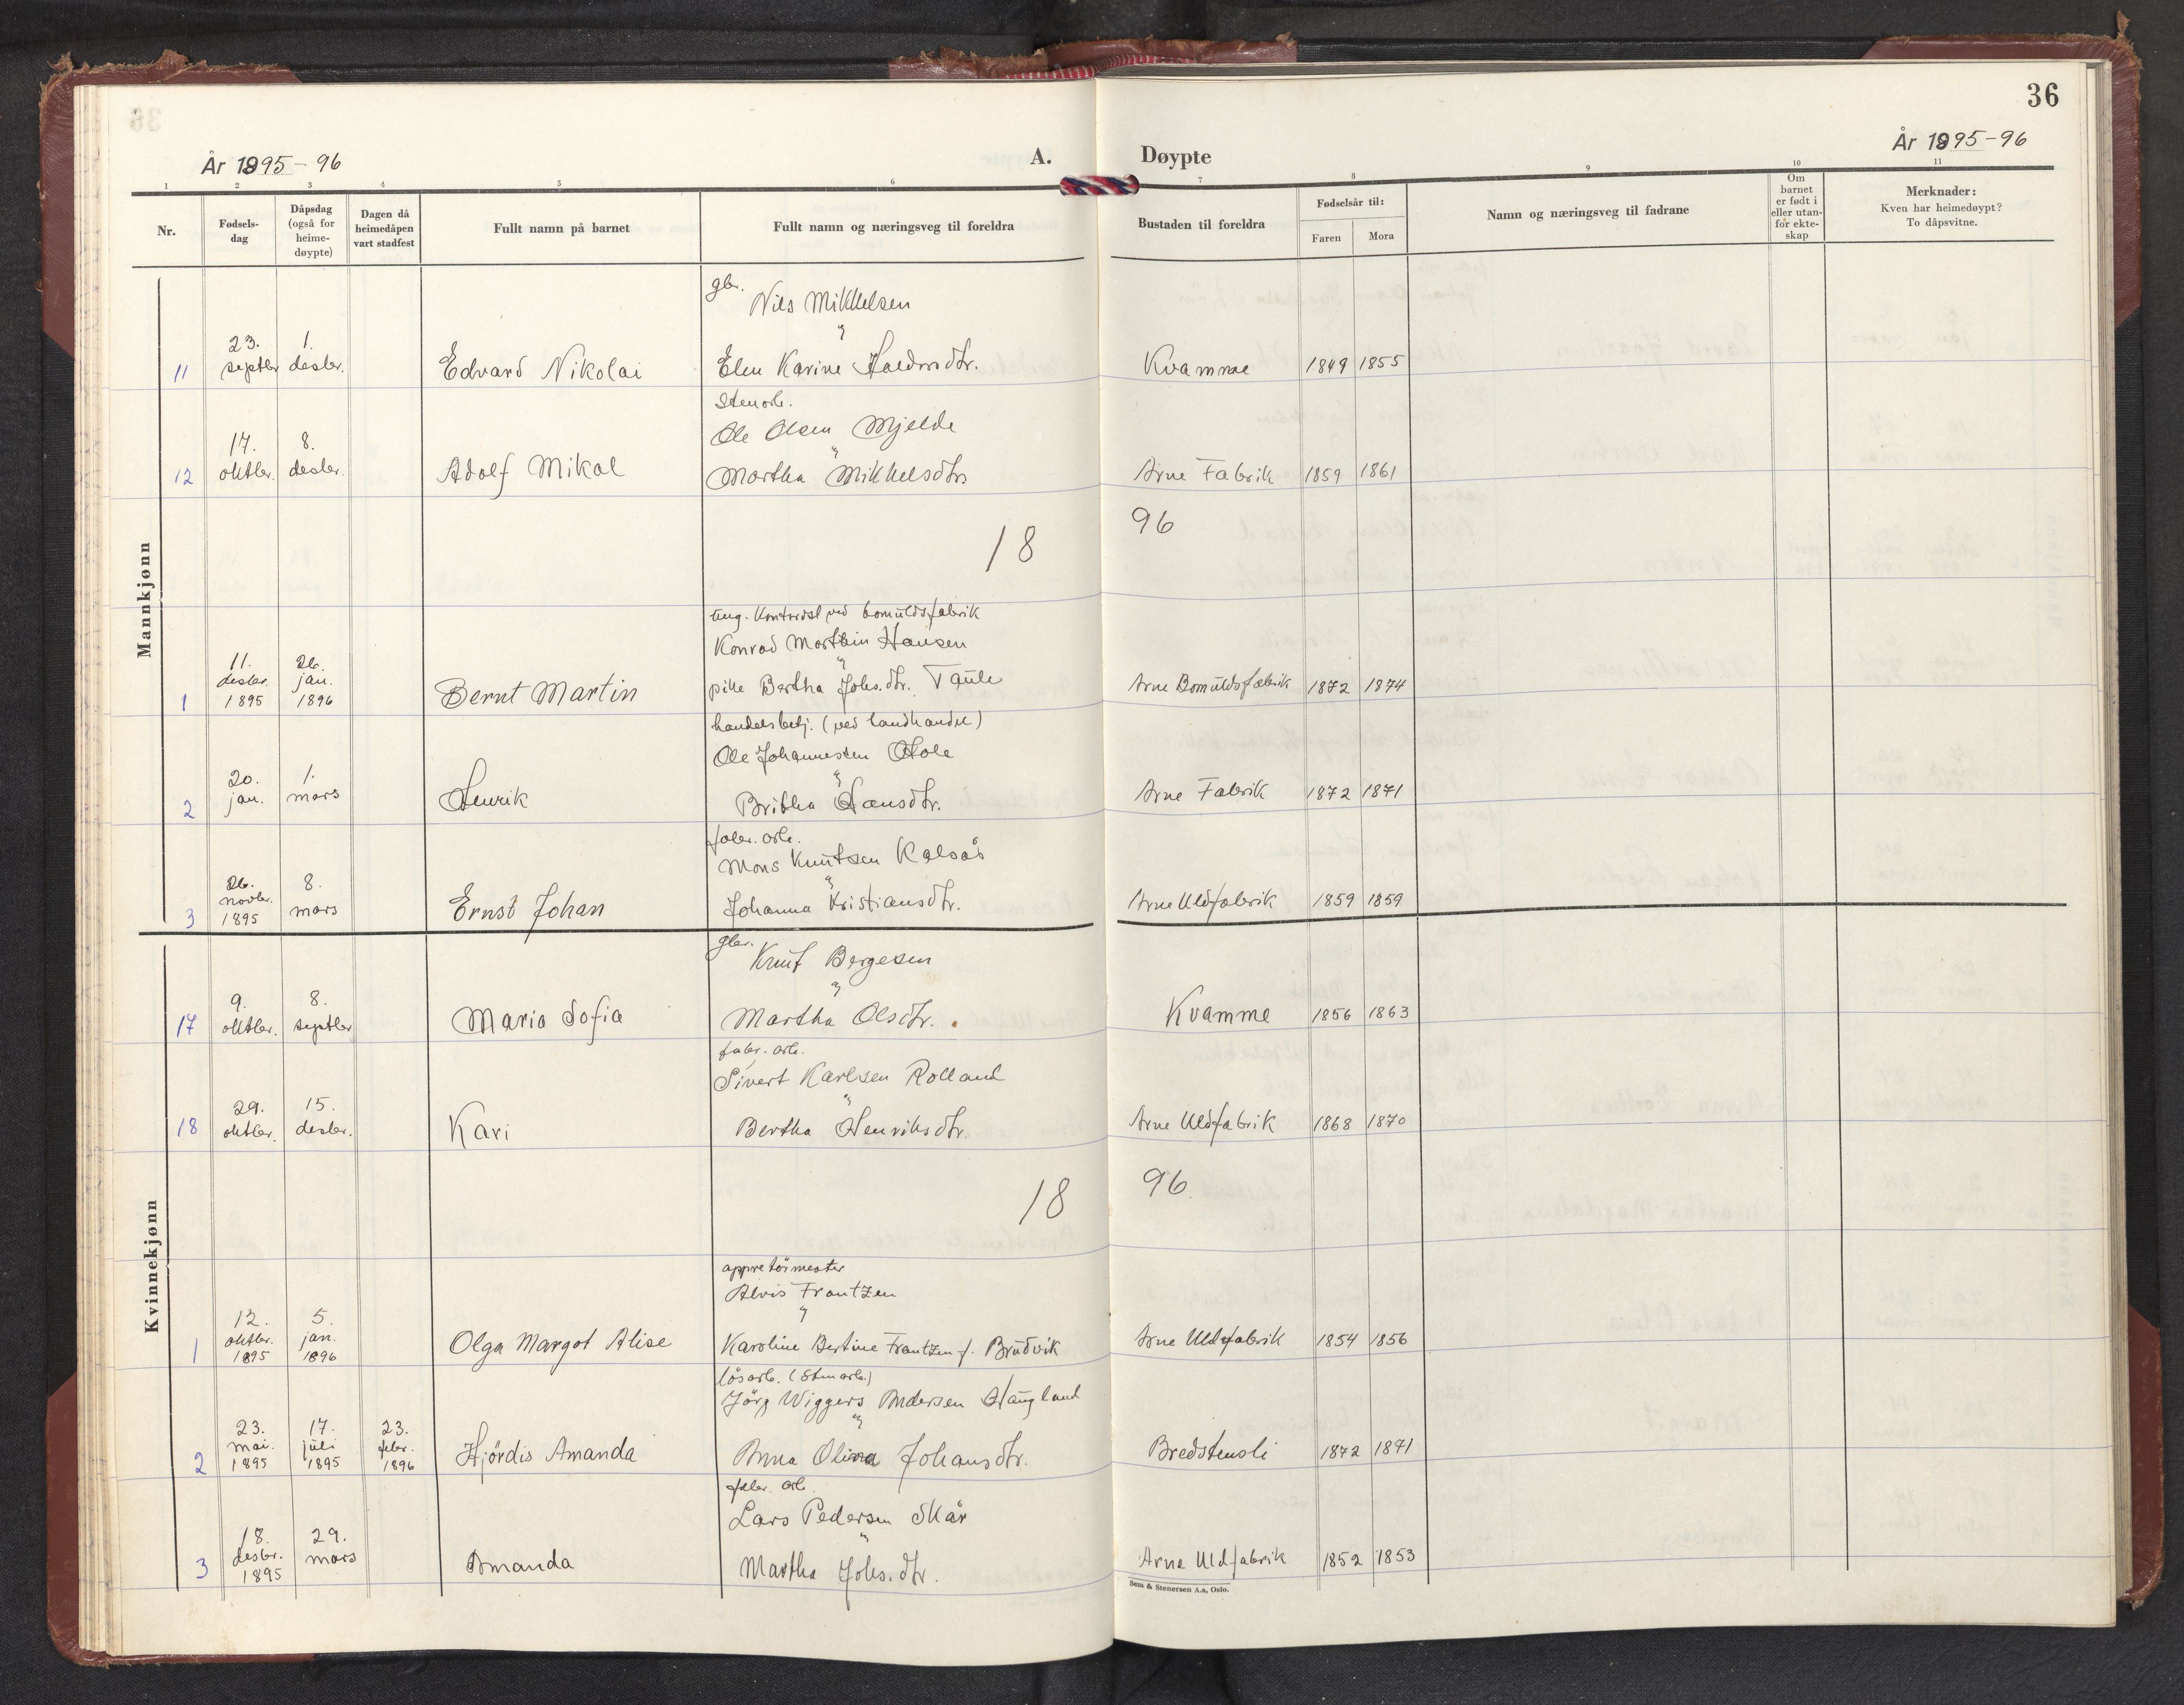 36
År 1895-96
A.
Døypte
År 1895-96
1 2 3 4 5 6 7 8 9 10 11
Nr.
Fødsels-
dag
Dåpsdag
(også for
heime-
døypte)
Dagen då
heimedåpen
vart stadfest
Fullt namn på barnet
Fullt namn og næringsveg til foreldra
Bustaden til foreldra
Fødselsår til:
Faren Mora
Namn og næringsveg til fadrane
Om
barnet
er født i
eller utan-
for ekte-
skap
Merknader:
Kven har heimedøypt?
To dåpsvitne.
Mannkjønn
gbr.
Nils Mikkelsen
23. 1.
11 septbr desbr. Edvard Nikolai Elen Karine Haldorsdtr. Kvamme 1849 1855
Stenarb.
Ole Olsen Mjelde
17. 8.
12 oktbr. desbr. Adolf Mikal Martha Mikkelsdtr Arne Fabrik 1859 1861
18 96
ung. Kontorist ved bomuldsfabrik
Konrad Marthin Hansen
11. 26.
desbr. jan.
1 1895 1896 Bernt Martin pike Bertha Johs.dtr. Taule Arne Bomuldsfabrik 1872 1874
handelsbetj. (ved landhandel)
Ole Johannessen Hole
20. 1.
2 jan. mars Henrik Britha Hansdtr. Arne Fabrik 1872 1871
fabr. arb.
Mons Knutsen Kalsås
26. 8.
novbr. mars
3 1895 Ernst Johan Johanna Kristiansdtr. Arne Uldfabrik 1859 1859
Kvinnekjønn
gbr.
Knut Bergesen
9. 8.
17 oktbr. septbr Maria Sofia Martha Olsdtr. Kvamme 1856 1863
fabr. arb.
Sivert Karlsen Rolland
29. 15.
18 oktbr. desbr. Kari Bertha Henriksdtr. Arne Uldfabrik 1868 1870
18 96.
appretörmester
Alvis Frantzen
12. 5.
oktbr. jan.
1 1895 1896 Olga Margot Alise Karoline Bertine Frantzen f. Brudvik Arne Uldfabrik 1854 1856
lösarb. (Stenarb.)
Jörg Wiggers Andersen Haugland
23. 17. 23.
mai. juli febr.
2 1895 1895 1896 Hjördis Amanda Anna Olina Johansdtr. Bredstensli 1872 1871
fabr. arb.
Lars Pedersen Skår
18. 29.
desbr. mars
3 1895 Amanda Martha Johs.dtr. Arne Uldfabrik 1852 1853
Sem & Stenersen A.s, Oslo.